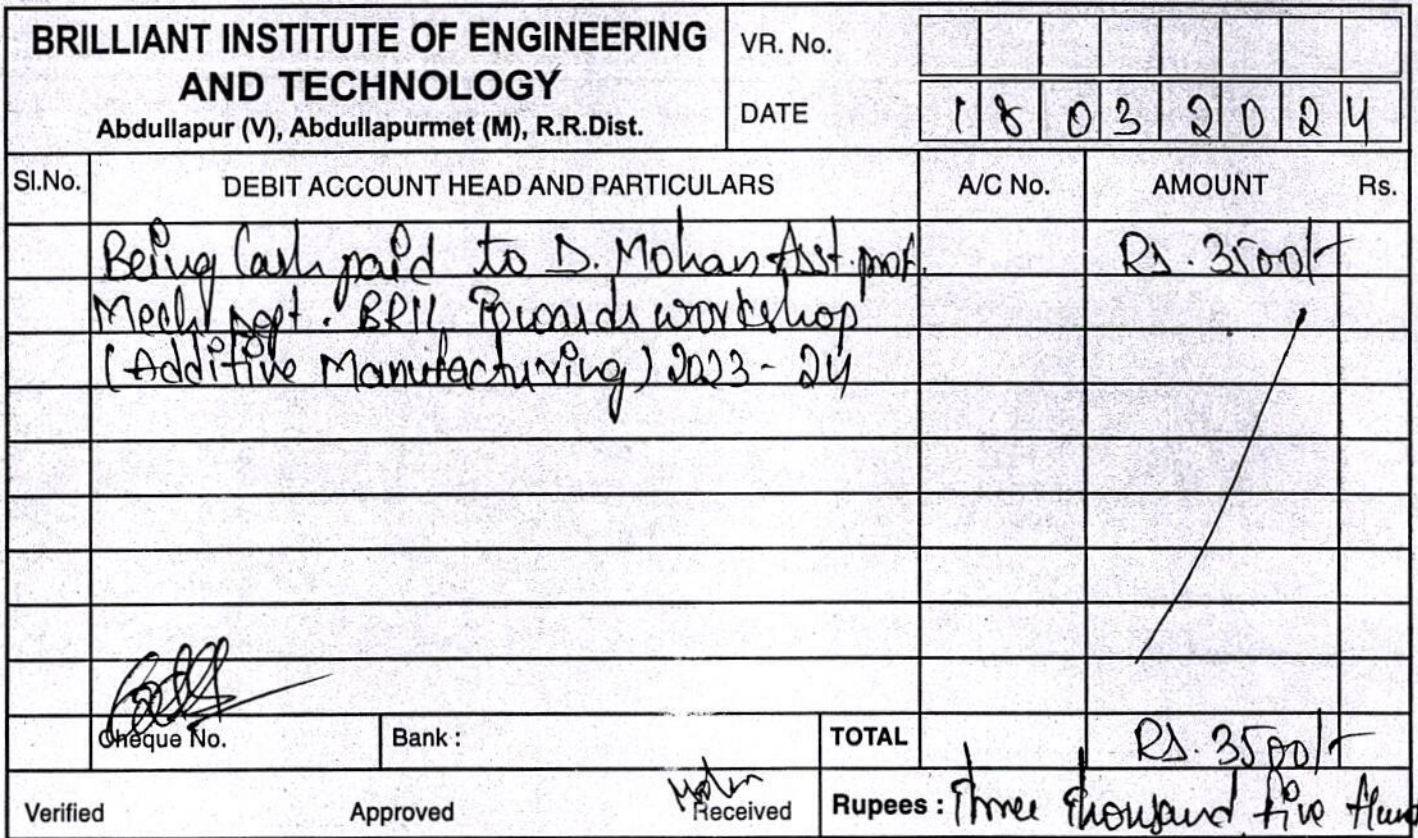 BRILLIANT INSTITUTE OF ENGINEERING
AND TECHNOLOGY
Abdullapur (V), Abdullapurmet (M), R.R.Dist.
VR. No.
DATE 18 03 2024
Sl.No. DEBIT ACCOUNT HEAD AND PARTICULARS A/C No. AMOUNT Rs.
Being Cash paid to D. Mohan Asst. prof. Rs. 3500/-
Mech Dept. Towards workshop
(Additive Manufacturing) 2023-24
Cheque No. Bank : TOTAL Rs. 3500/-
Verified Approved Received Rupees : Three Thousand Five Hun